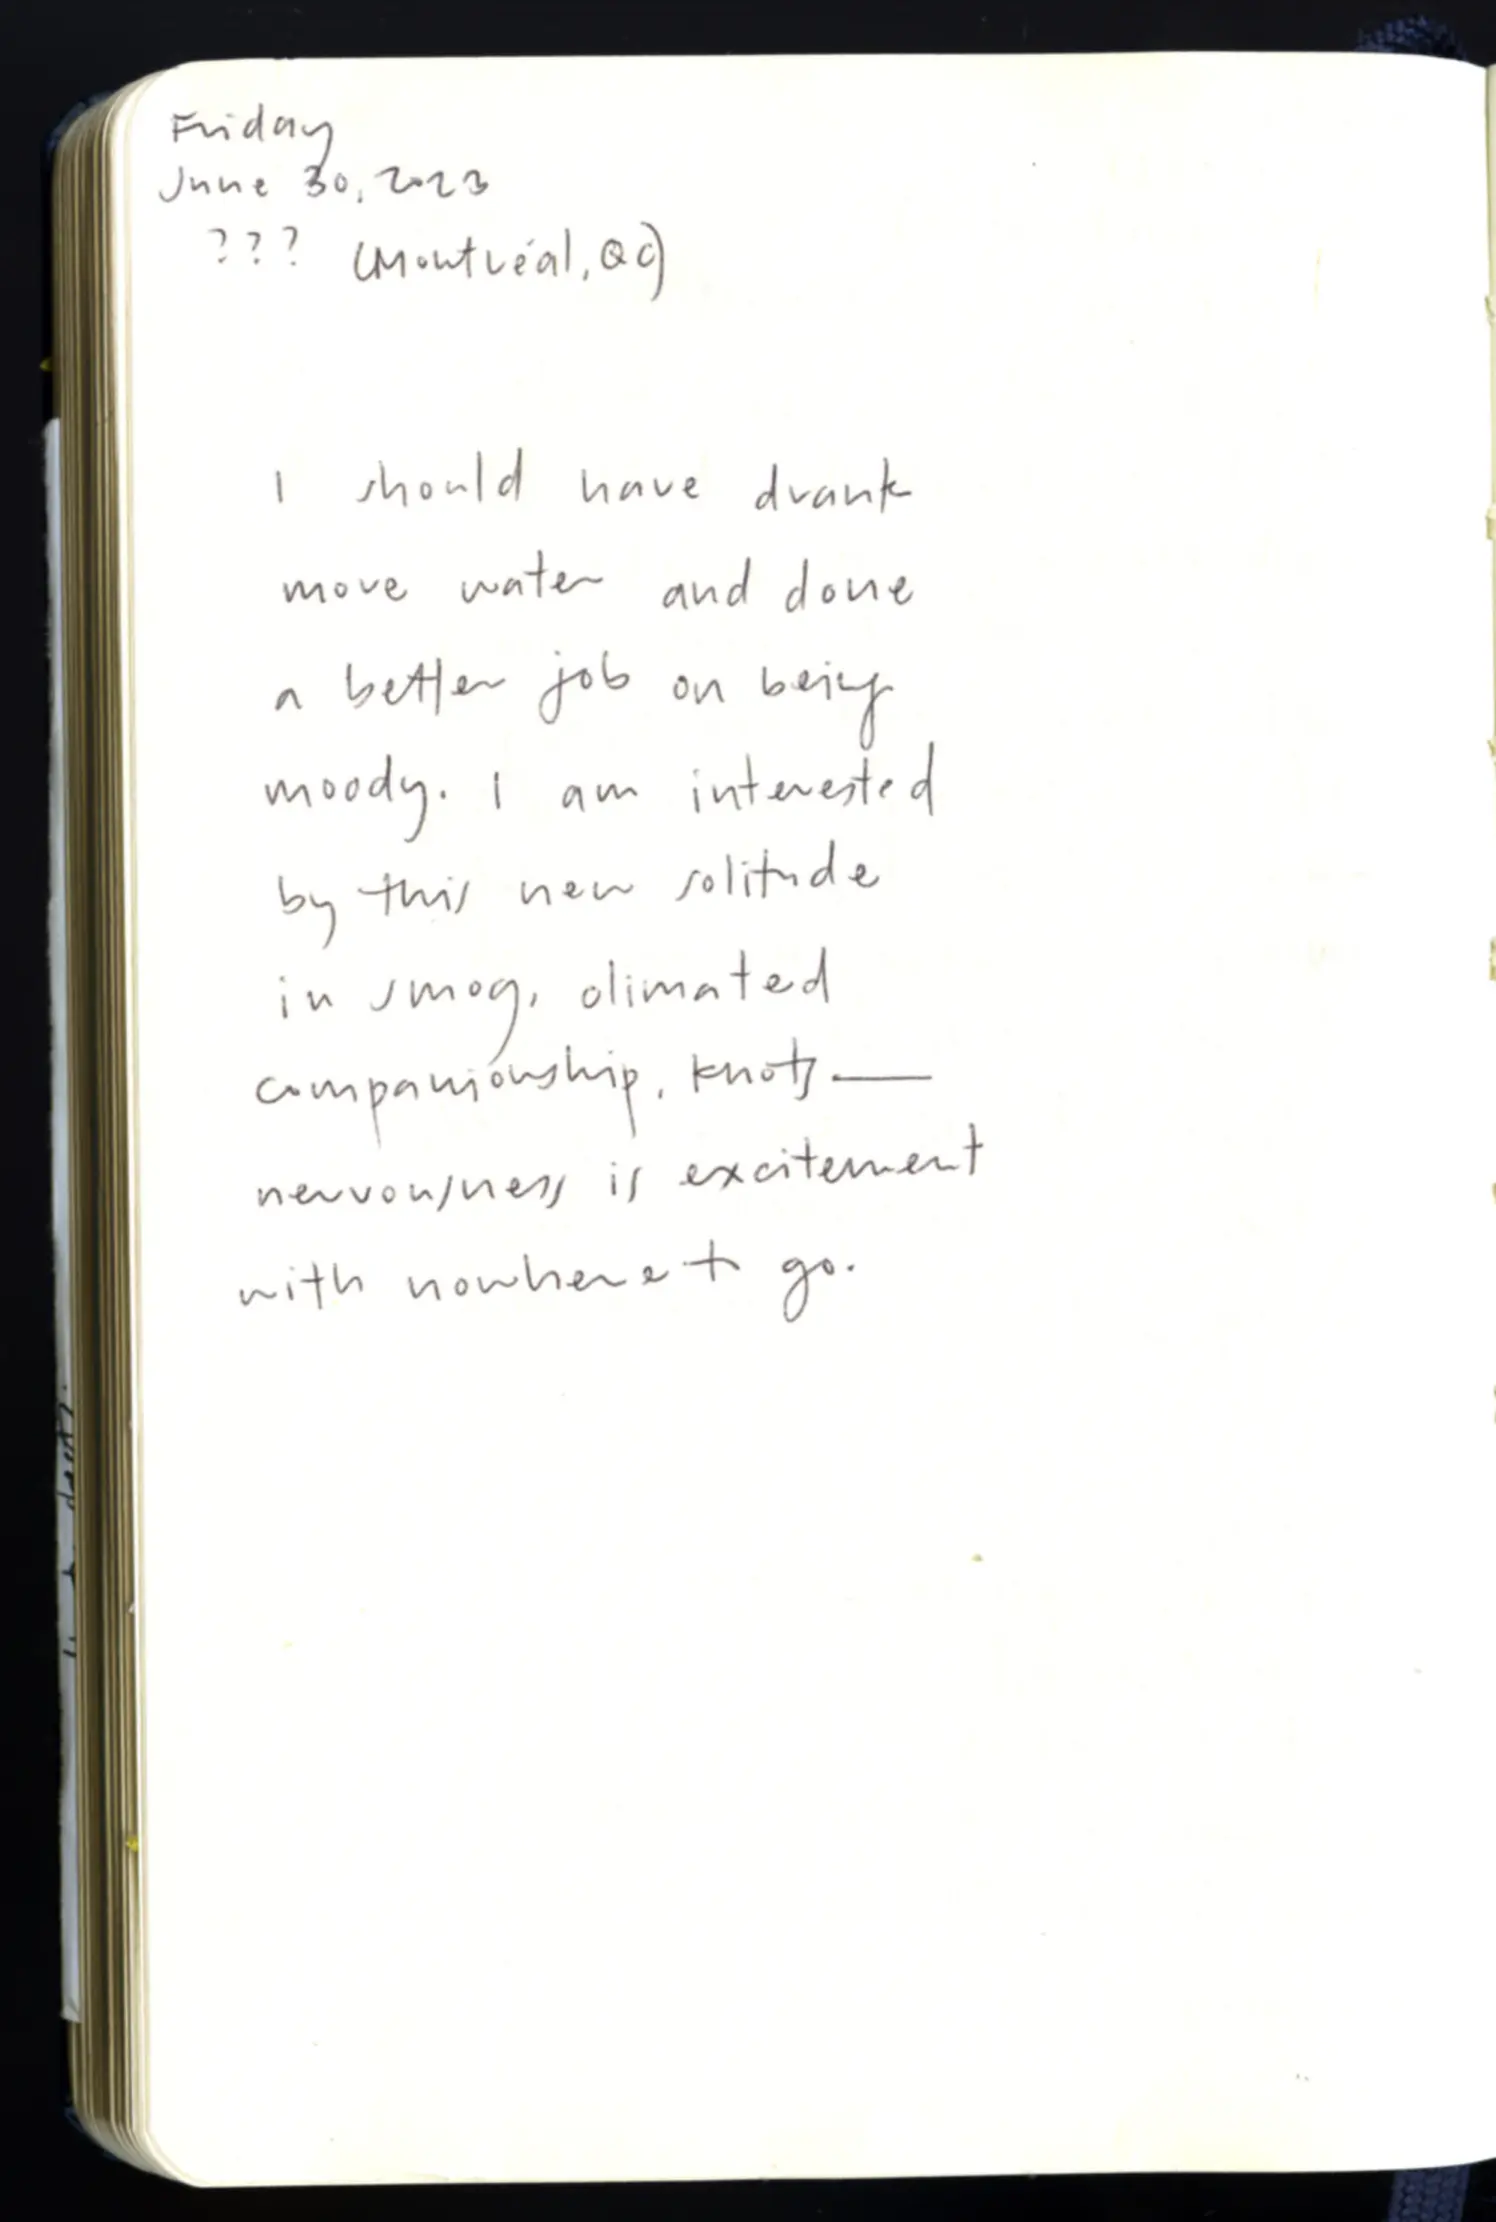 Friday
June 30, 2023
??? (Montréal, QC)
I should have drank
more water and done
a better job on being
moody. I am interested
by this new solitude
in smog, climated
companionship, knots —
nervousness is excitement
with nowhere to go.